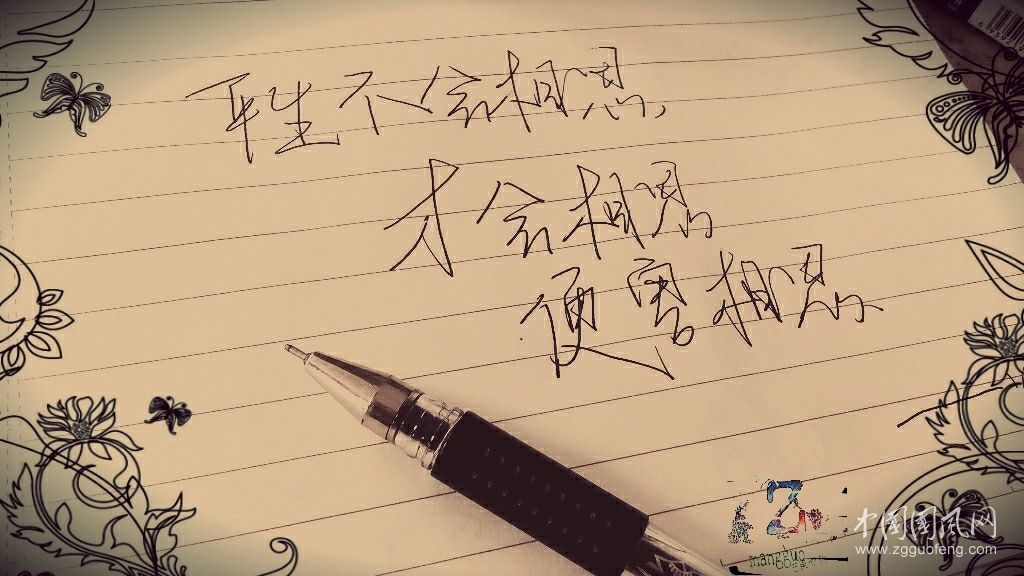 平生不会相思
才会相思
便害相思
manguo
中国国风网
www.zgguofeng.com